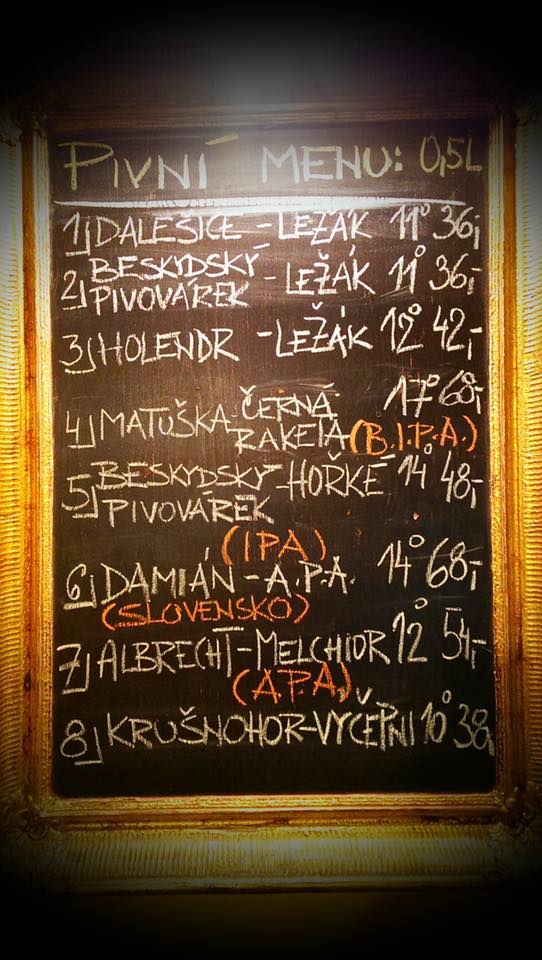 PIVNÍ MENU: 0,5L
1) DALEŠICE - LEŽÁK 11° 36,-
2) BESKYDSKÝ PIVOVÁREK - LEŽÁK 11° 36,-
3) HOLENDR - LEŽÁK 12° 42,-
4) MATUŠKA - ČERNÁ RAKETA (B.I.P.A.) 17° 68,-
5) BESKYDSKÝ PIVOVÁREK - HOŘKÉ 14° 48,-
(IPA)
6) DAMIÁN - A.P.A. 14° 68,-
(SLOVENSKO)
7) ALBRECHT - MELCHIOR 12° 54,-
(A.P.A)
8) KRUŠNOHOR - VÝČEPNI 10° 38,